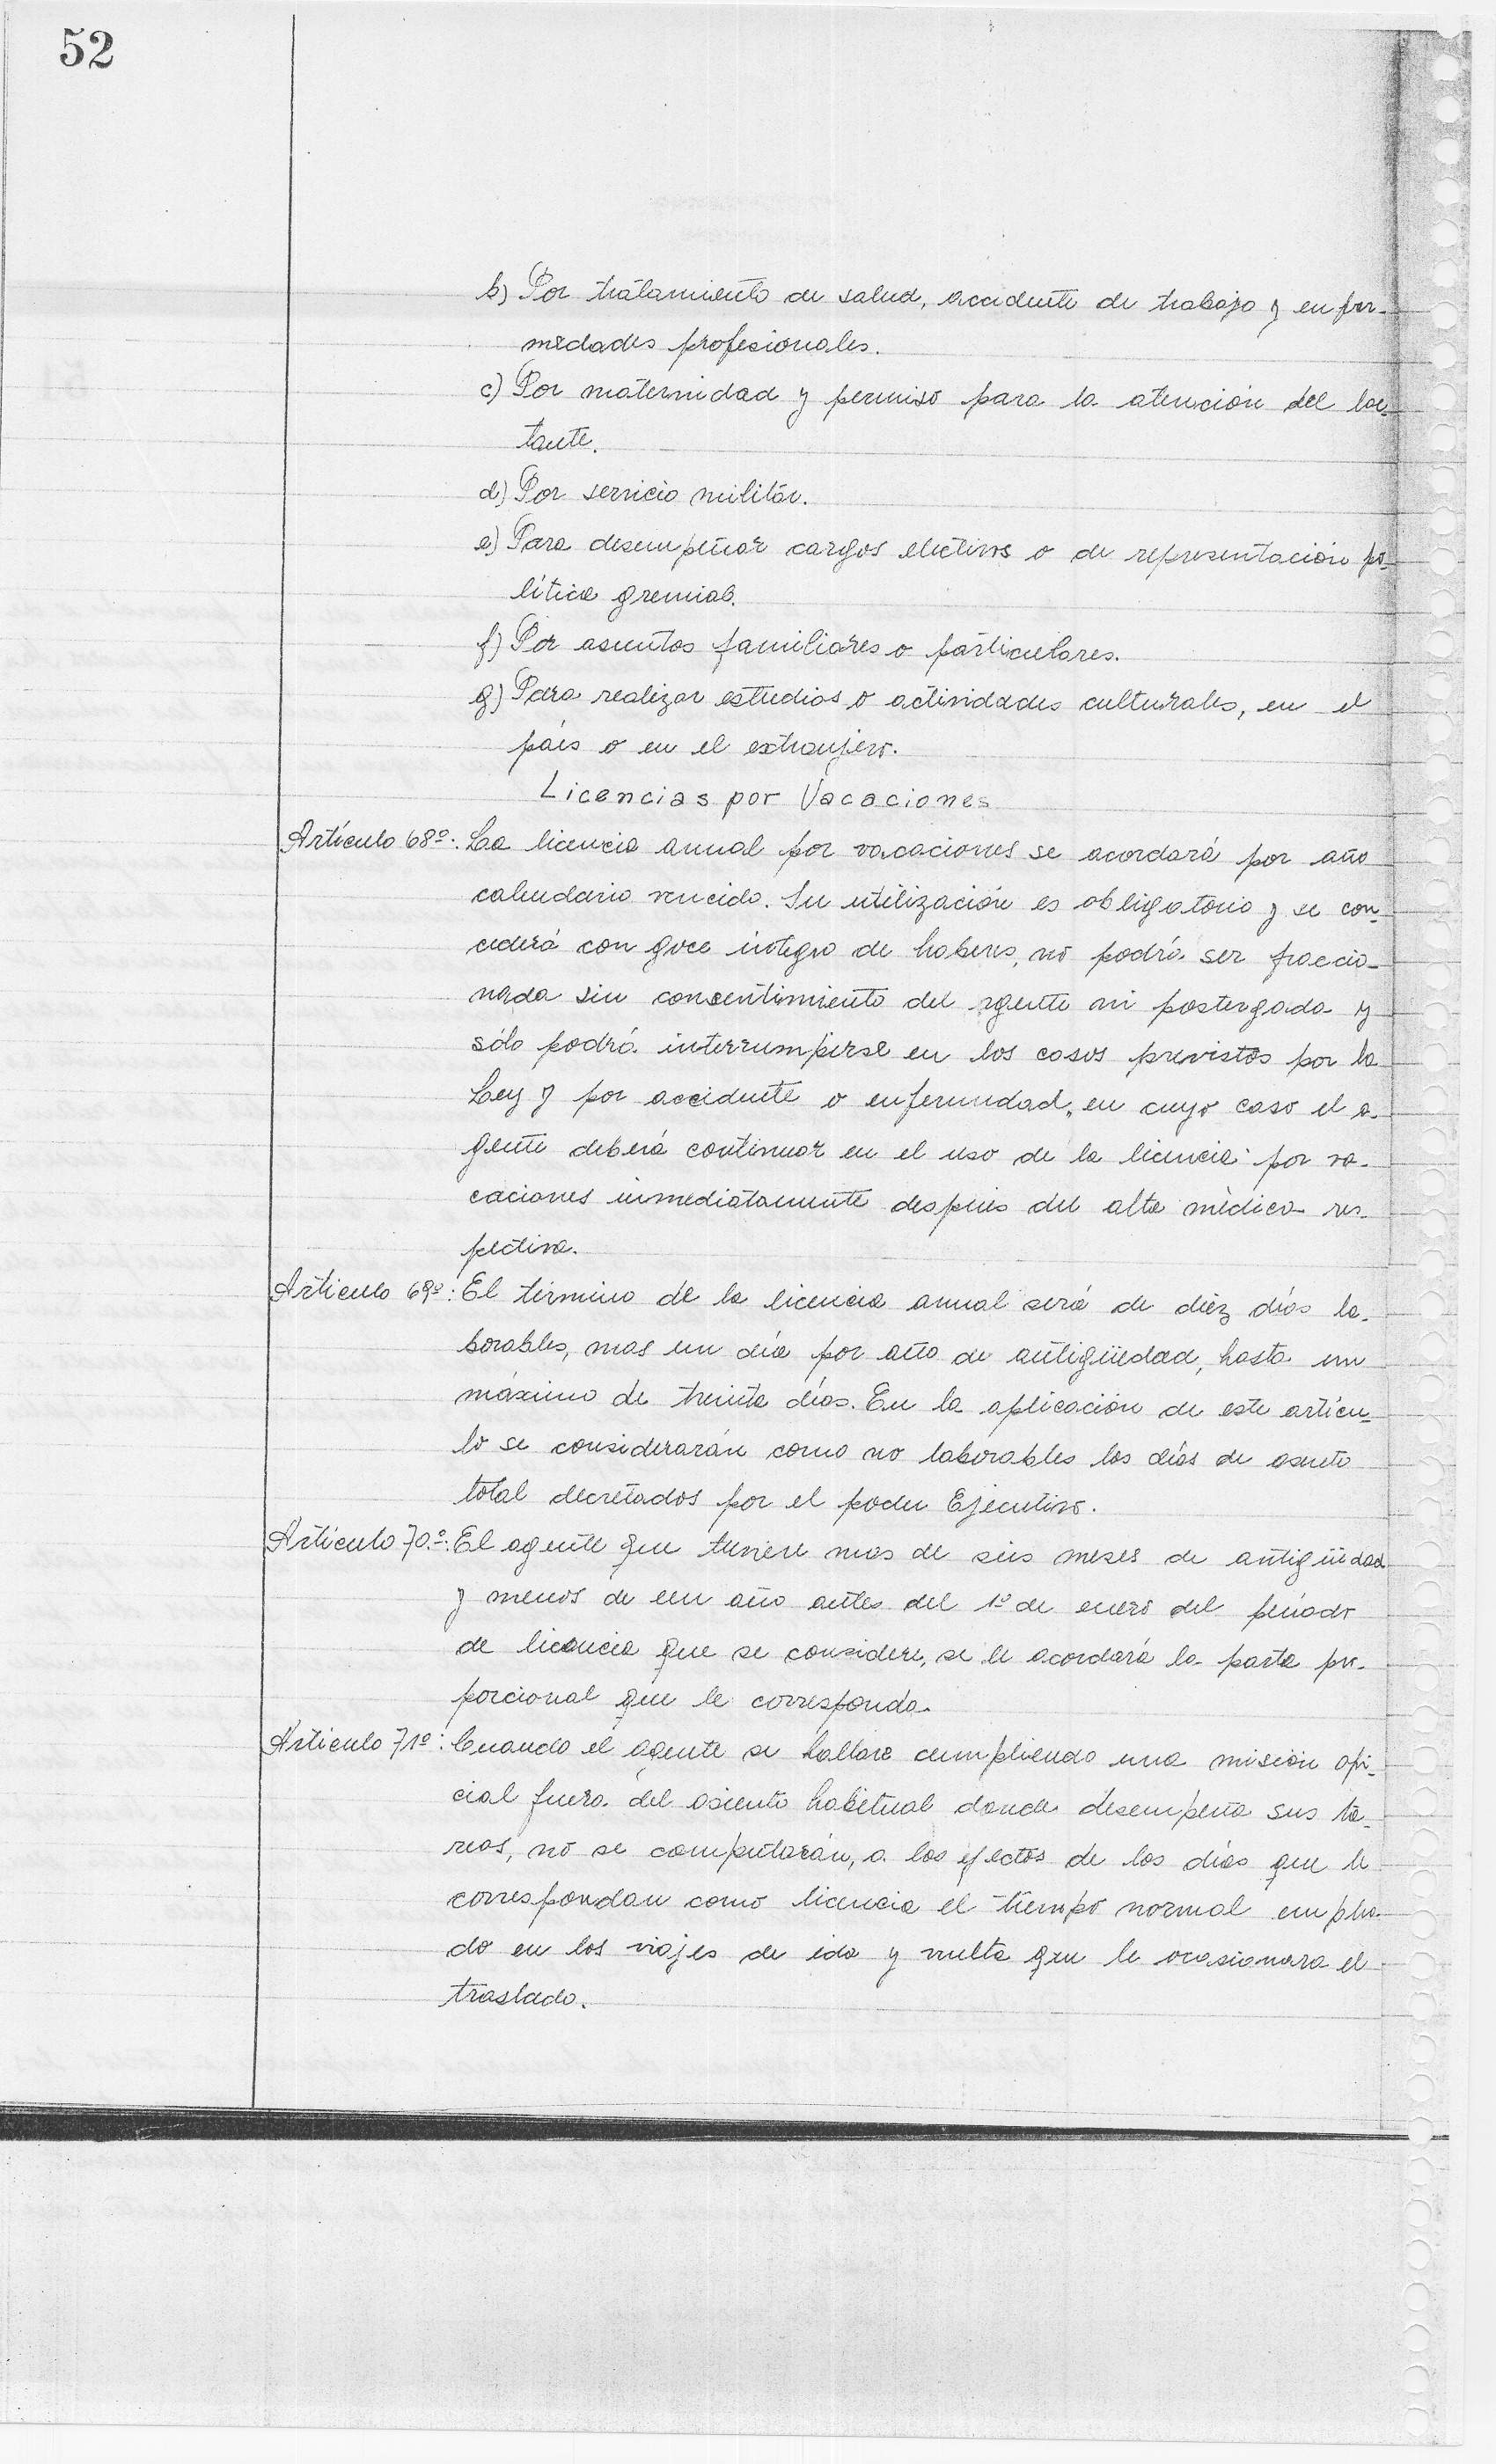 52
b) Por tratamiento de salud, accidente de trabajo y enfer-
medades profesionales.
c) Por maternidad y permiso para la atención del lac-
tante.
d) Por servicio militar.
e) Para desempeñar cargos electivos o de representación po-
lítica gremial.
f) Por asuntos familiares o particulares.
g) Para realizar estudios o actividades culturales, en el
país o en el extranjero.
Licencias por Vacaciones
Artículo 68º: La licencia anual por vacaciones se acordará por año
calendario vencido. Su utilización es obligatorio y se con-
cederá con goce integro de haberes, no podrá ser fraccio-
nada sin consentimiento del agente ni postergada y
sólo podrá interrumpirse en los casos previstos por la
Ley y por accidente o enfermedad, en cuyo caso el a-
gente deberá continuar en el uso de la licencia por va-
caciones inmediatamente despúes del alta médica res-
pectiva.
Artículo 69º: El término de la licencia anual será de diez días la-
borables, mas un día por año de antigüedad, hasta un
máximo de treinta días. En la aplicación de este artícu-
lo se considerarán como no laborables los días de asueto
total decretados por el poder Ejecutivo.
Artículo 70º: El agente que tuviere mas de seis meses de antigüedad
y menos de un año antes del 1º de enero del período
de licencia que se considere, se le acordará la parte pro-
porcional que le corresponda.
Artículo 71º: Cuando el agente se hallare cumpliendo una misión ofi-
cial fuera del asiento habitual donde desempeña sus ta-
reas, no se computarán, a los efectos de los días que le
correspondan como licencia el tiempo normal emplea-
do en los viajes de ida y vuelta que le ocasionara el
traslado.